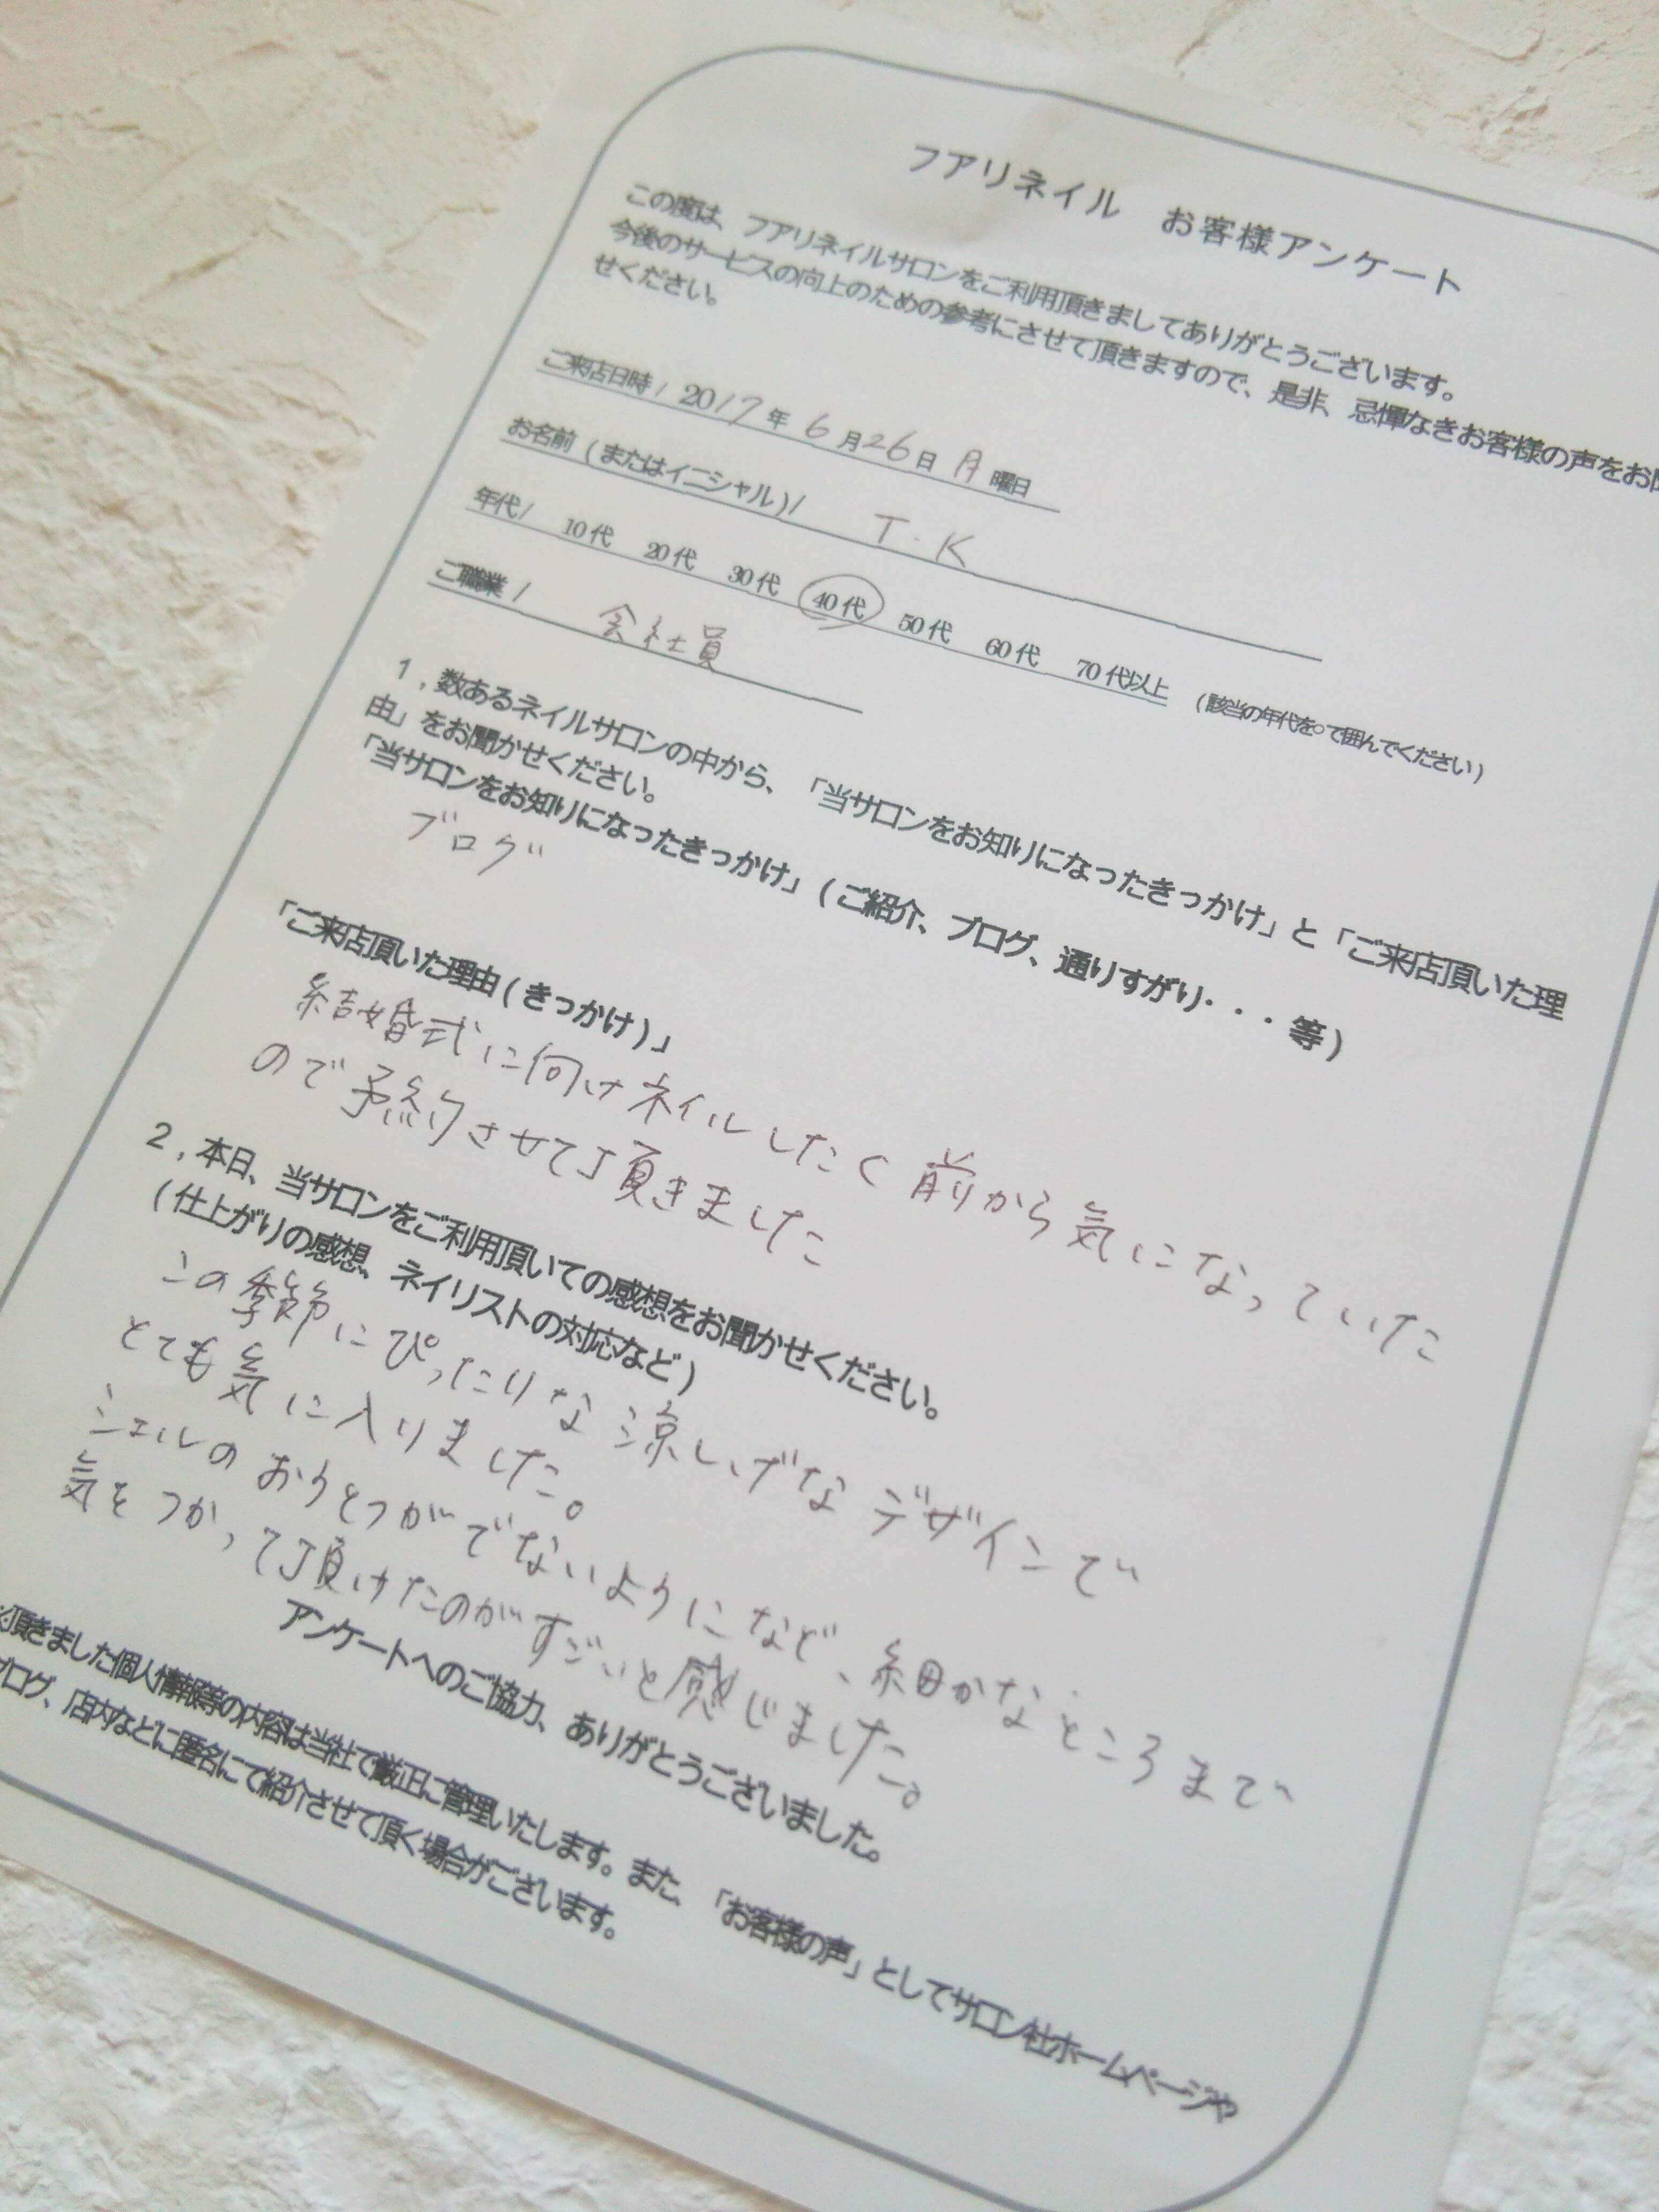 フアリネイル　お客様アンケート
この度は、フアリネイルサロンをご利用頂きましてありがとうございます。
今後のサービスの向上のための参考にさせて頂きますので、是非、忌憚なきお客様の声をお聞
せください。
ご来店日時 / 2017 年 6 月 26 日 月 曜日
お名前 (またはイニシャル) / T.K
年代 / 10代 20代 30代 40代 50代 60代 70代以上 (該当の年代を○で囲んでください)
ご職業 / 会社員
1，数あるネイルサロンの中から、「当サロンをお知りになったきっかけ」と「ご来店頂いた理
由」をお聞かせください。
「当サロンをお知りになったきっかけ」(ご紹介、ブログ、通りすがり・・・等)
ブログ
「ご来店頂いた理由(きっかけ)」
結婚式に向けネイルしたく前から気になっていた
ので予約させて頂きました
2，本日、当サロンをご利用頂いての感想をお聞かせください。
(仕上がりの感想、ネイリストの対応など)
この季節にぴったりな涼しげなデザインで
とても気に入りました。
シェルのおうとつがでないようになど、細かなところまで
気をつかって頂けたのがすごいと感じました。
アンケートへのご協力、ありがとうございました。
※頂きました個人情報等の内容は当社で厳正に管理いたします。また、「お客様の声」としてサロン社ホームページや
ブログ、店内などに匿名にて紹介させて頂く場合がございます。